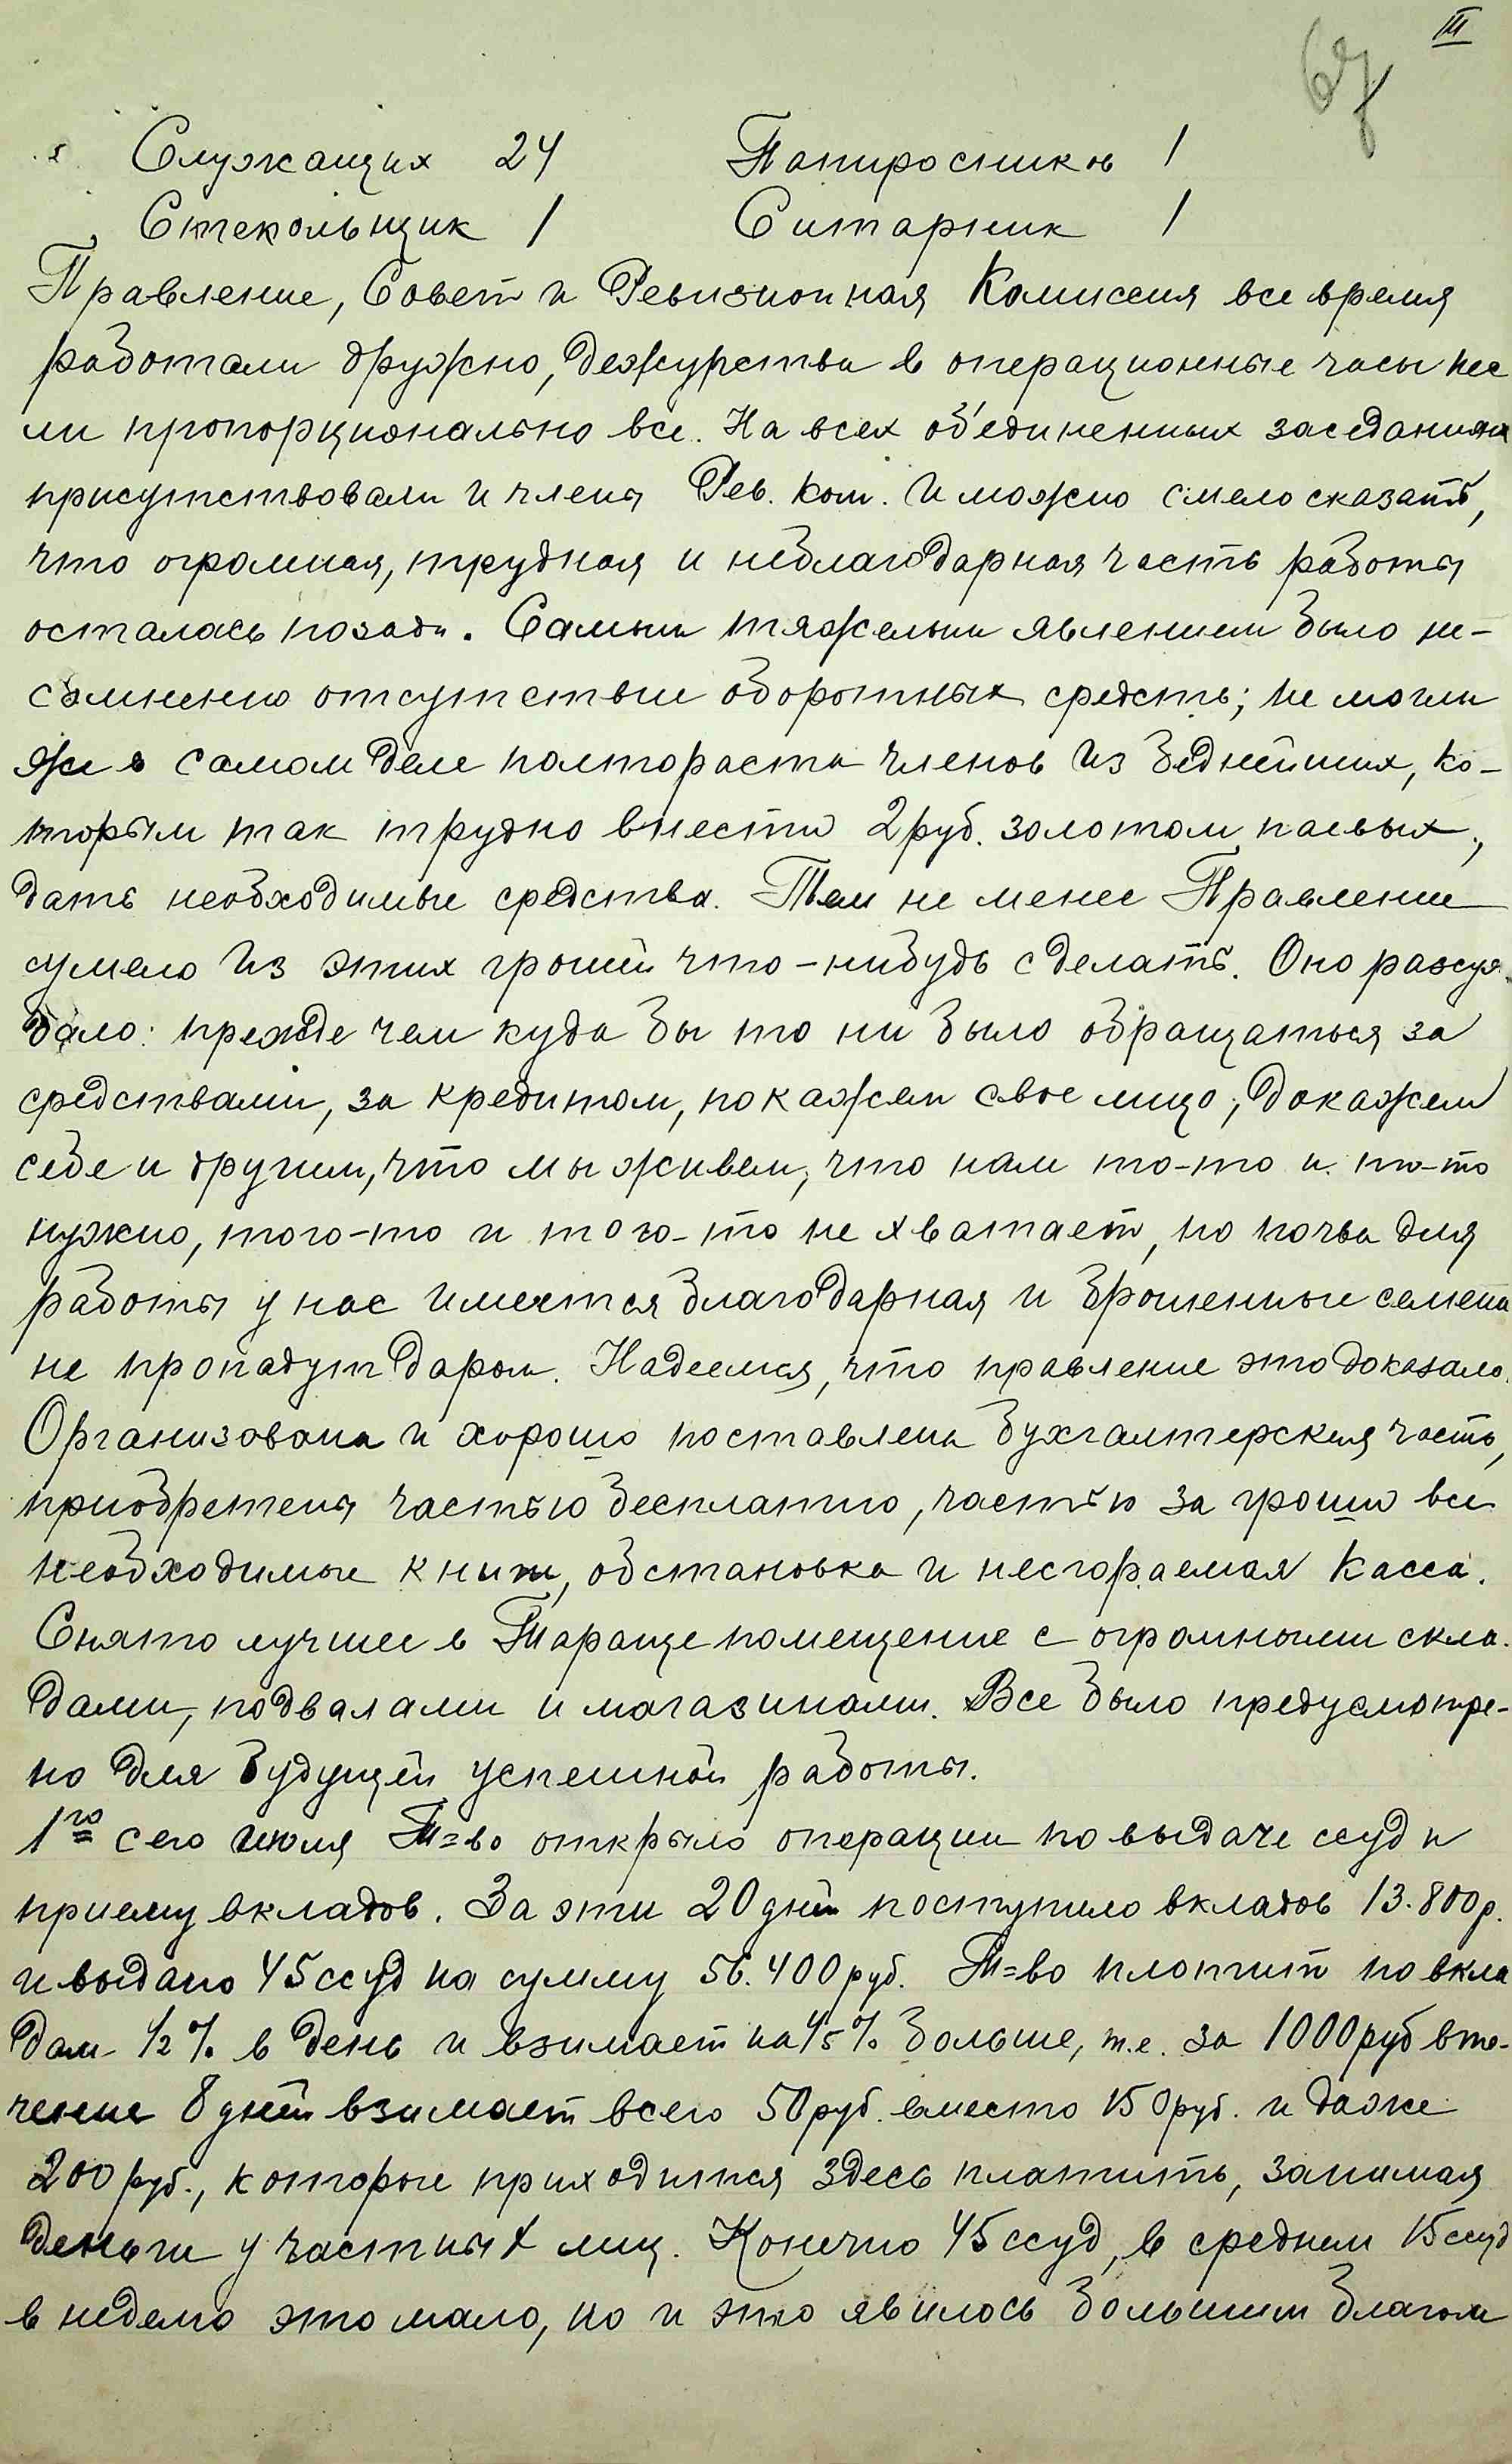 III
67
Служащих 24 Папиросников 1
Стекольщик 1 Ситарник 1
Правление, Совет и Ревизионная Комиссия все время
работали дружно, дежурства в операционные часы нес
ли пропорционально все. На всех об'единенных заседаниях
присутствовали и члены Рев. Ком. И можно смело сказать,
что огромная, трудная и неблагодарная часть работы
осталась позади. Самым тяжелым явлением было не-
сомненно отсутствие оборотных средств; не могли
же в самом деле полтораста членов из беднейших, ко-
торым так трудно внести 2 руб. золотом паевых,
дать необходимые средства. Тем не менее Правление
сумело из этих грошей что-нибудь сделать. Оно рассуж
дало: прежде чем куда бы то ни было обращаться за
средствами, за кредитом, покажем свое лицо, докажем
себе и другим, что мы живем, что нам то-то и то-то
нужно, того-то и того-то не хватает, но почва для
работы у нас имеется благодарная и брошенные семена
не пропадут даром. Надеемся, что правление это доказало.
Организована и хорошо поставлена бухгалтерская часть,
приобретены частью бесплатно, частью за гроши все
необходимые книги, обстановка и несгораемая касса.
Снято лучшее в Тараще помещение с огромными скла-
дами, подвалами и магазинами. Все было предусмотре-
но для будущей успешной работы.
1го сего июля Т=во открыло операции по выдаче ссуд и
приему вкладов. За эти 20 дней поступило вкладов 13.800 р.
и выдано 45 ссуд на сумму 56.400 руб. Т=во платит по вкла
дам 1/2% в день и взимает на 1/5% больше, т.е. за 1000 руб в те-
чение 8 дней взимает всего 50 руб. вместо 150 руб. и даже
200 руб., которые приходится здесь платить, занимая
деньги у частных лиц. Конечно 45 ссуд, в среднем 15 ссуд
в неделю это мало, но и это явилось большим благом